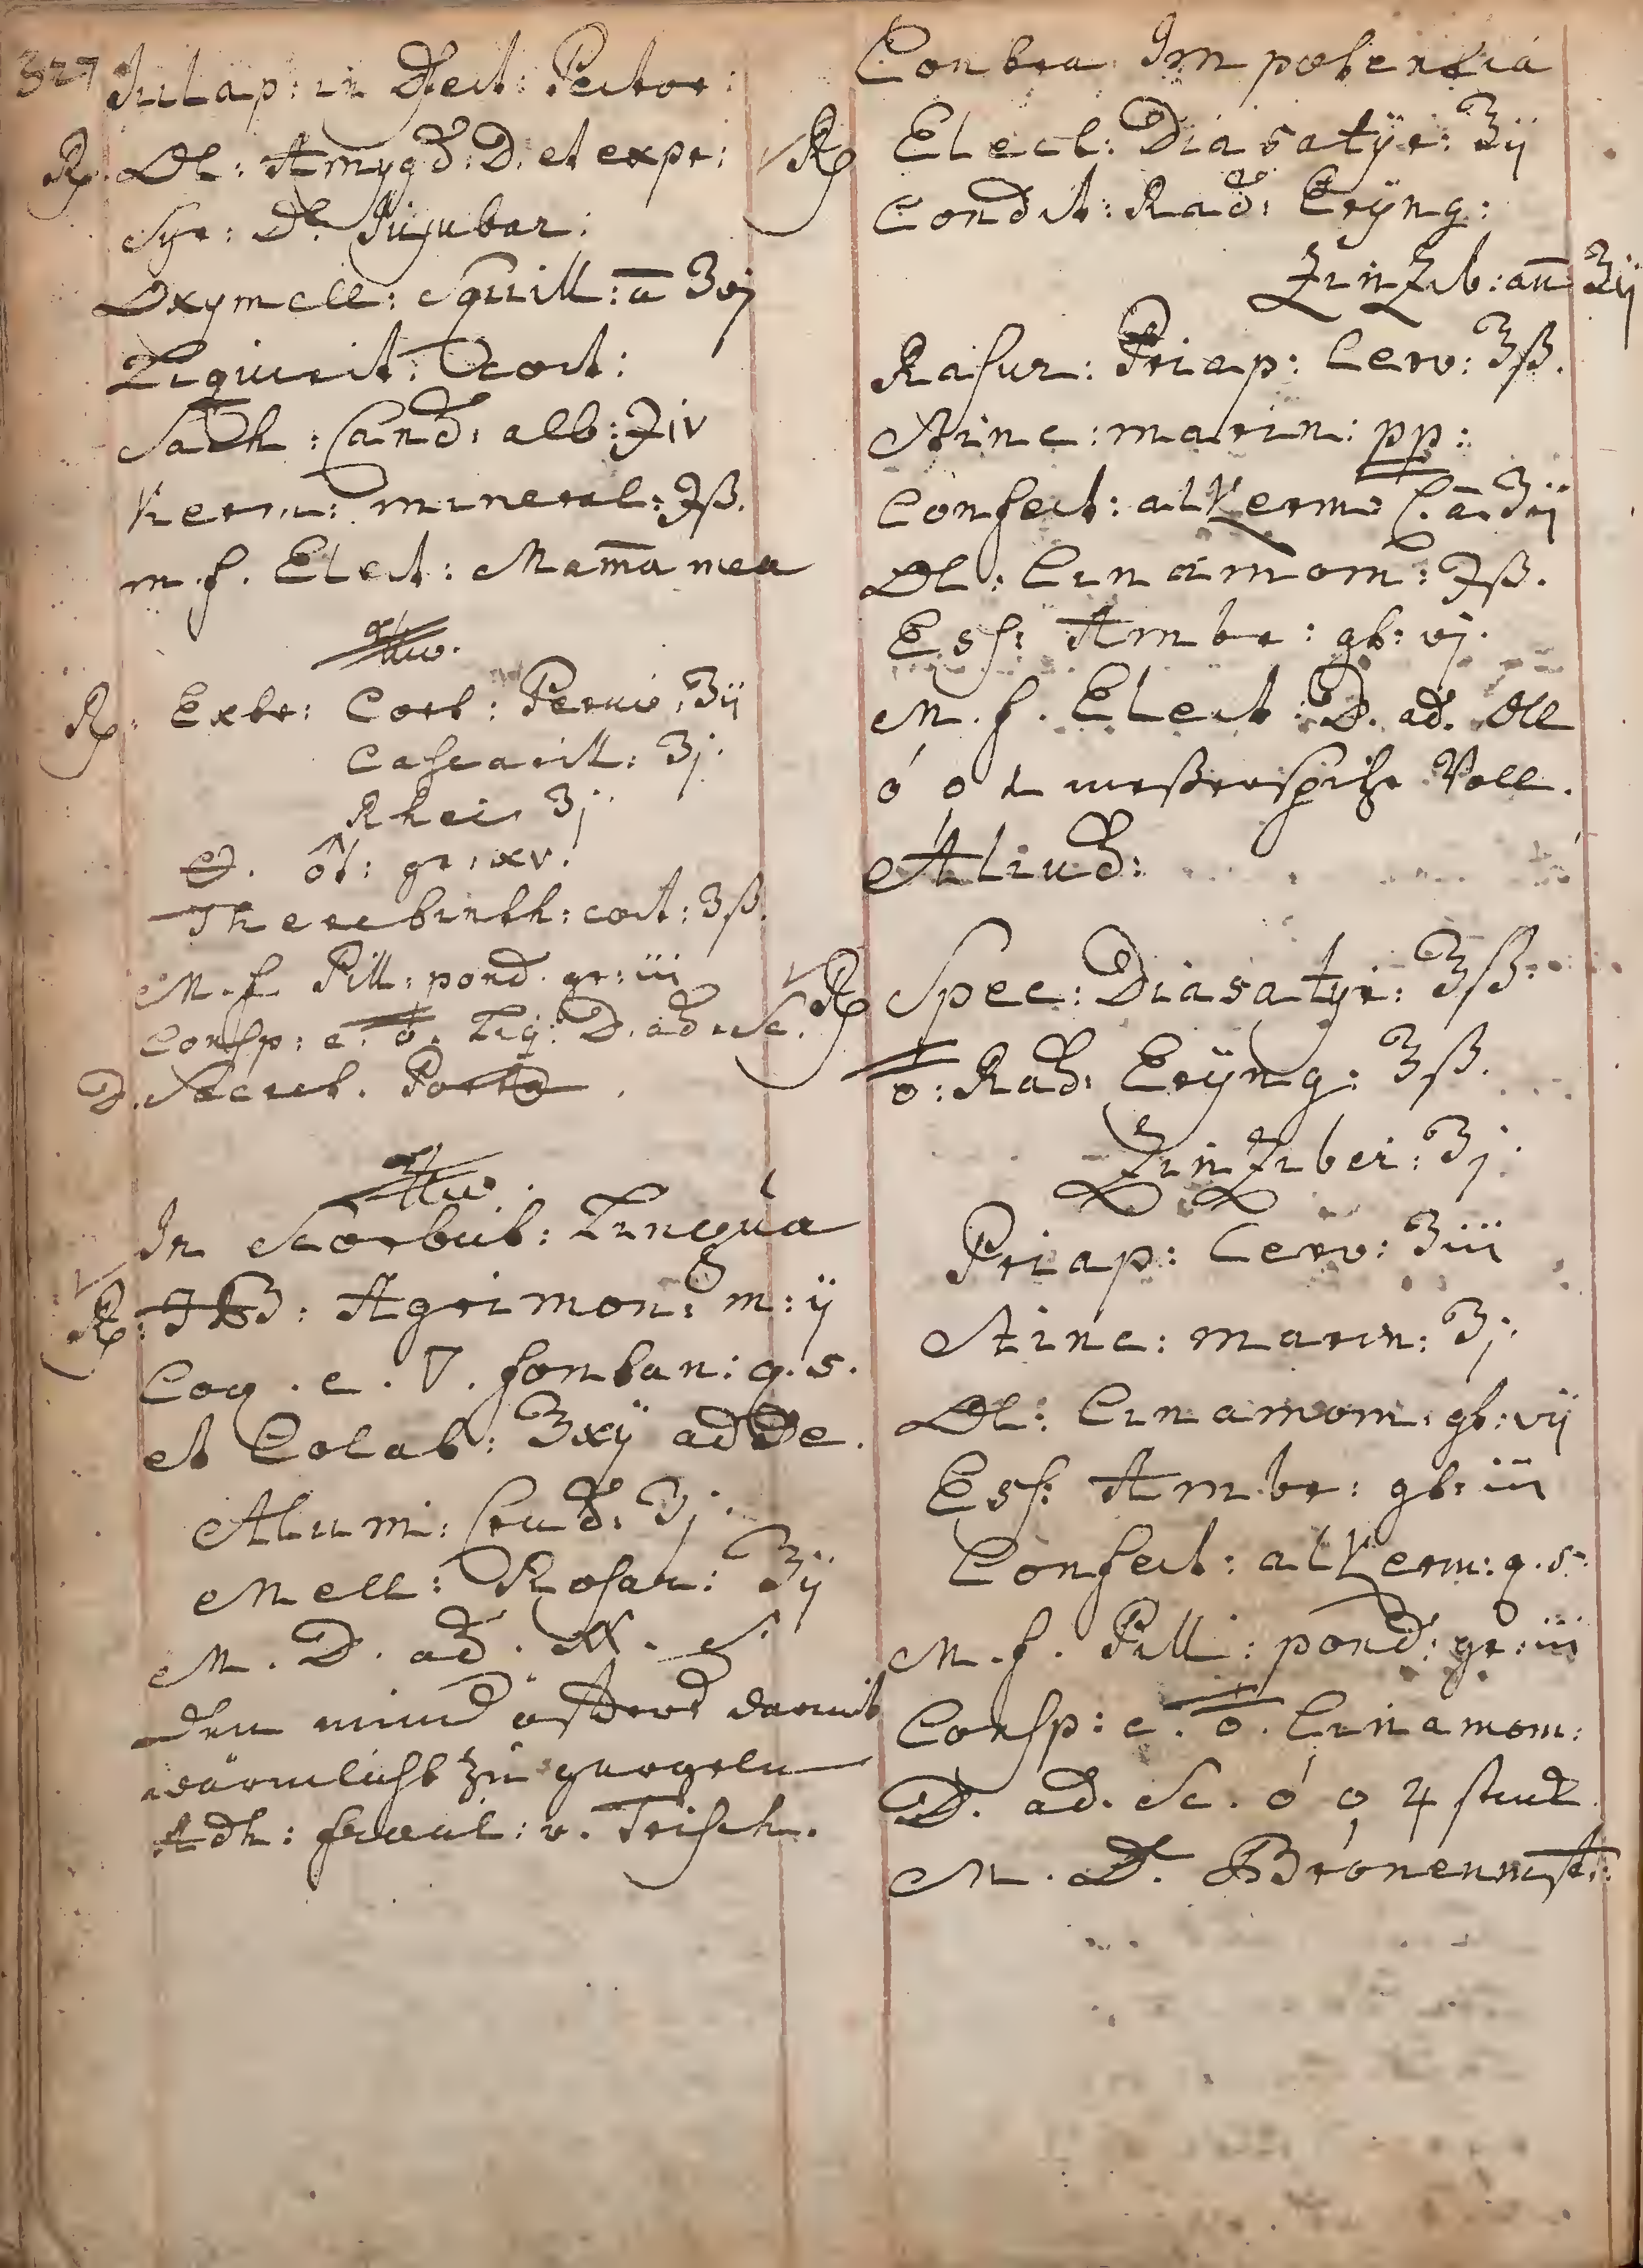 327
Julap: in Affect: Pector:
℞. Ol: Amygd: D: et expr:
Syr: de Jujubar:
Oxymell: Squill: ā ʒvj
Liquirit: Coct:
Sach: Cand: alb: ℈iv
Kerm: mineral: ℈ß.
m.f. Elect: Mam̄a mea
℞: Extr: Cort: Peruv: ʒij
Cascarill: ʒj.
Rhei ʒj.
gr: xv.
Therebinth: coct: ʒß.
M.f. Pill: pond. gr: iii
Consp: c. Liq: D. ad Sc.
D. Secret.
In Scorbut: Lingua
℞: Agrimon: m: ij
Coq. c. ▽. fontan: q.s.
et Colat: ʒxij adde.
Alumi: Crud: ʒj.
Mell: Rosar: ʒij
M. D. ad. S.
den mund öffters darmit
wärmlicht zu gurgeln
Adh: v. Trisch.
Contra Impotentia
℞ Elect: Diasatÿr: ʒij
Condit: Rad: Erÿng:
Zinzib: an̄ ʒij
Rasur: Priap: Cerv: ʒß.
Stinc: marin: pp:
Confect: alkerm: C. ā. ʒij
Ol: Cinamom: ℈ß.
Ess: Ambr: gt: vj.
M.f. Elect: D. ad. Oll
messerspitz Voll.
Aliud:
℞ Spec: Diasatyr: ʒß.
Rad: Erÿng: ʒß.
Zinziber: ʒj.
Priap: Cerv: ʒiii
Stinc: marin: ʒj.
Ol: Cinamom: gt: vij
Ess: Ambr: gt: iii
Confect: alkerm: q.s.
M.f. Pill: pond: gr: iii
Consp: c. Cinamom:
D. ad. Sc. 4 stuck
M. D.